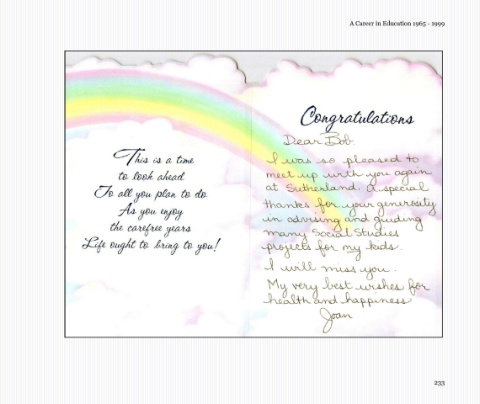 A Career in Education 1965 - 1999
This is a time
to look ahead
To all you plan to do
As you enjoy
the carefree years
Life ought to bring to you!
Congratulations
Dear Bob.
I was so pleased to
meet up with you again
at Sutherland. A special
thanks for your generosity
in advising and guiding
many Social Studies
projects for my kids.
I will miss you.
My very best wishes for
health and happiness
Joan
233